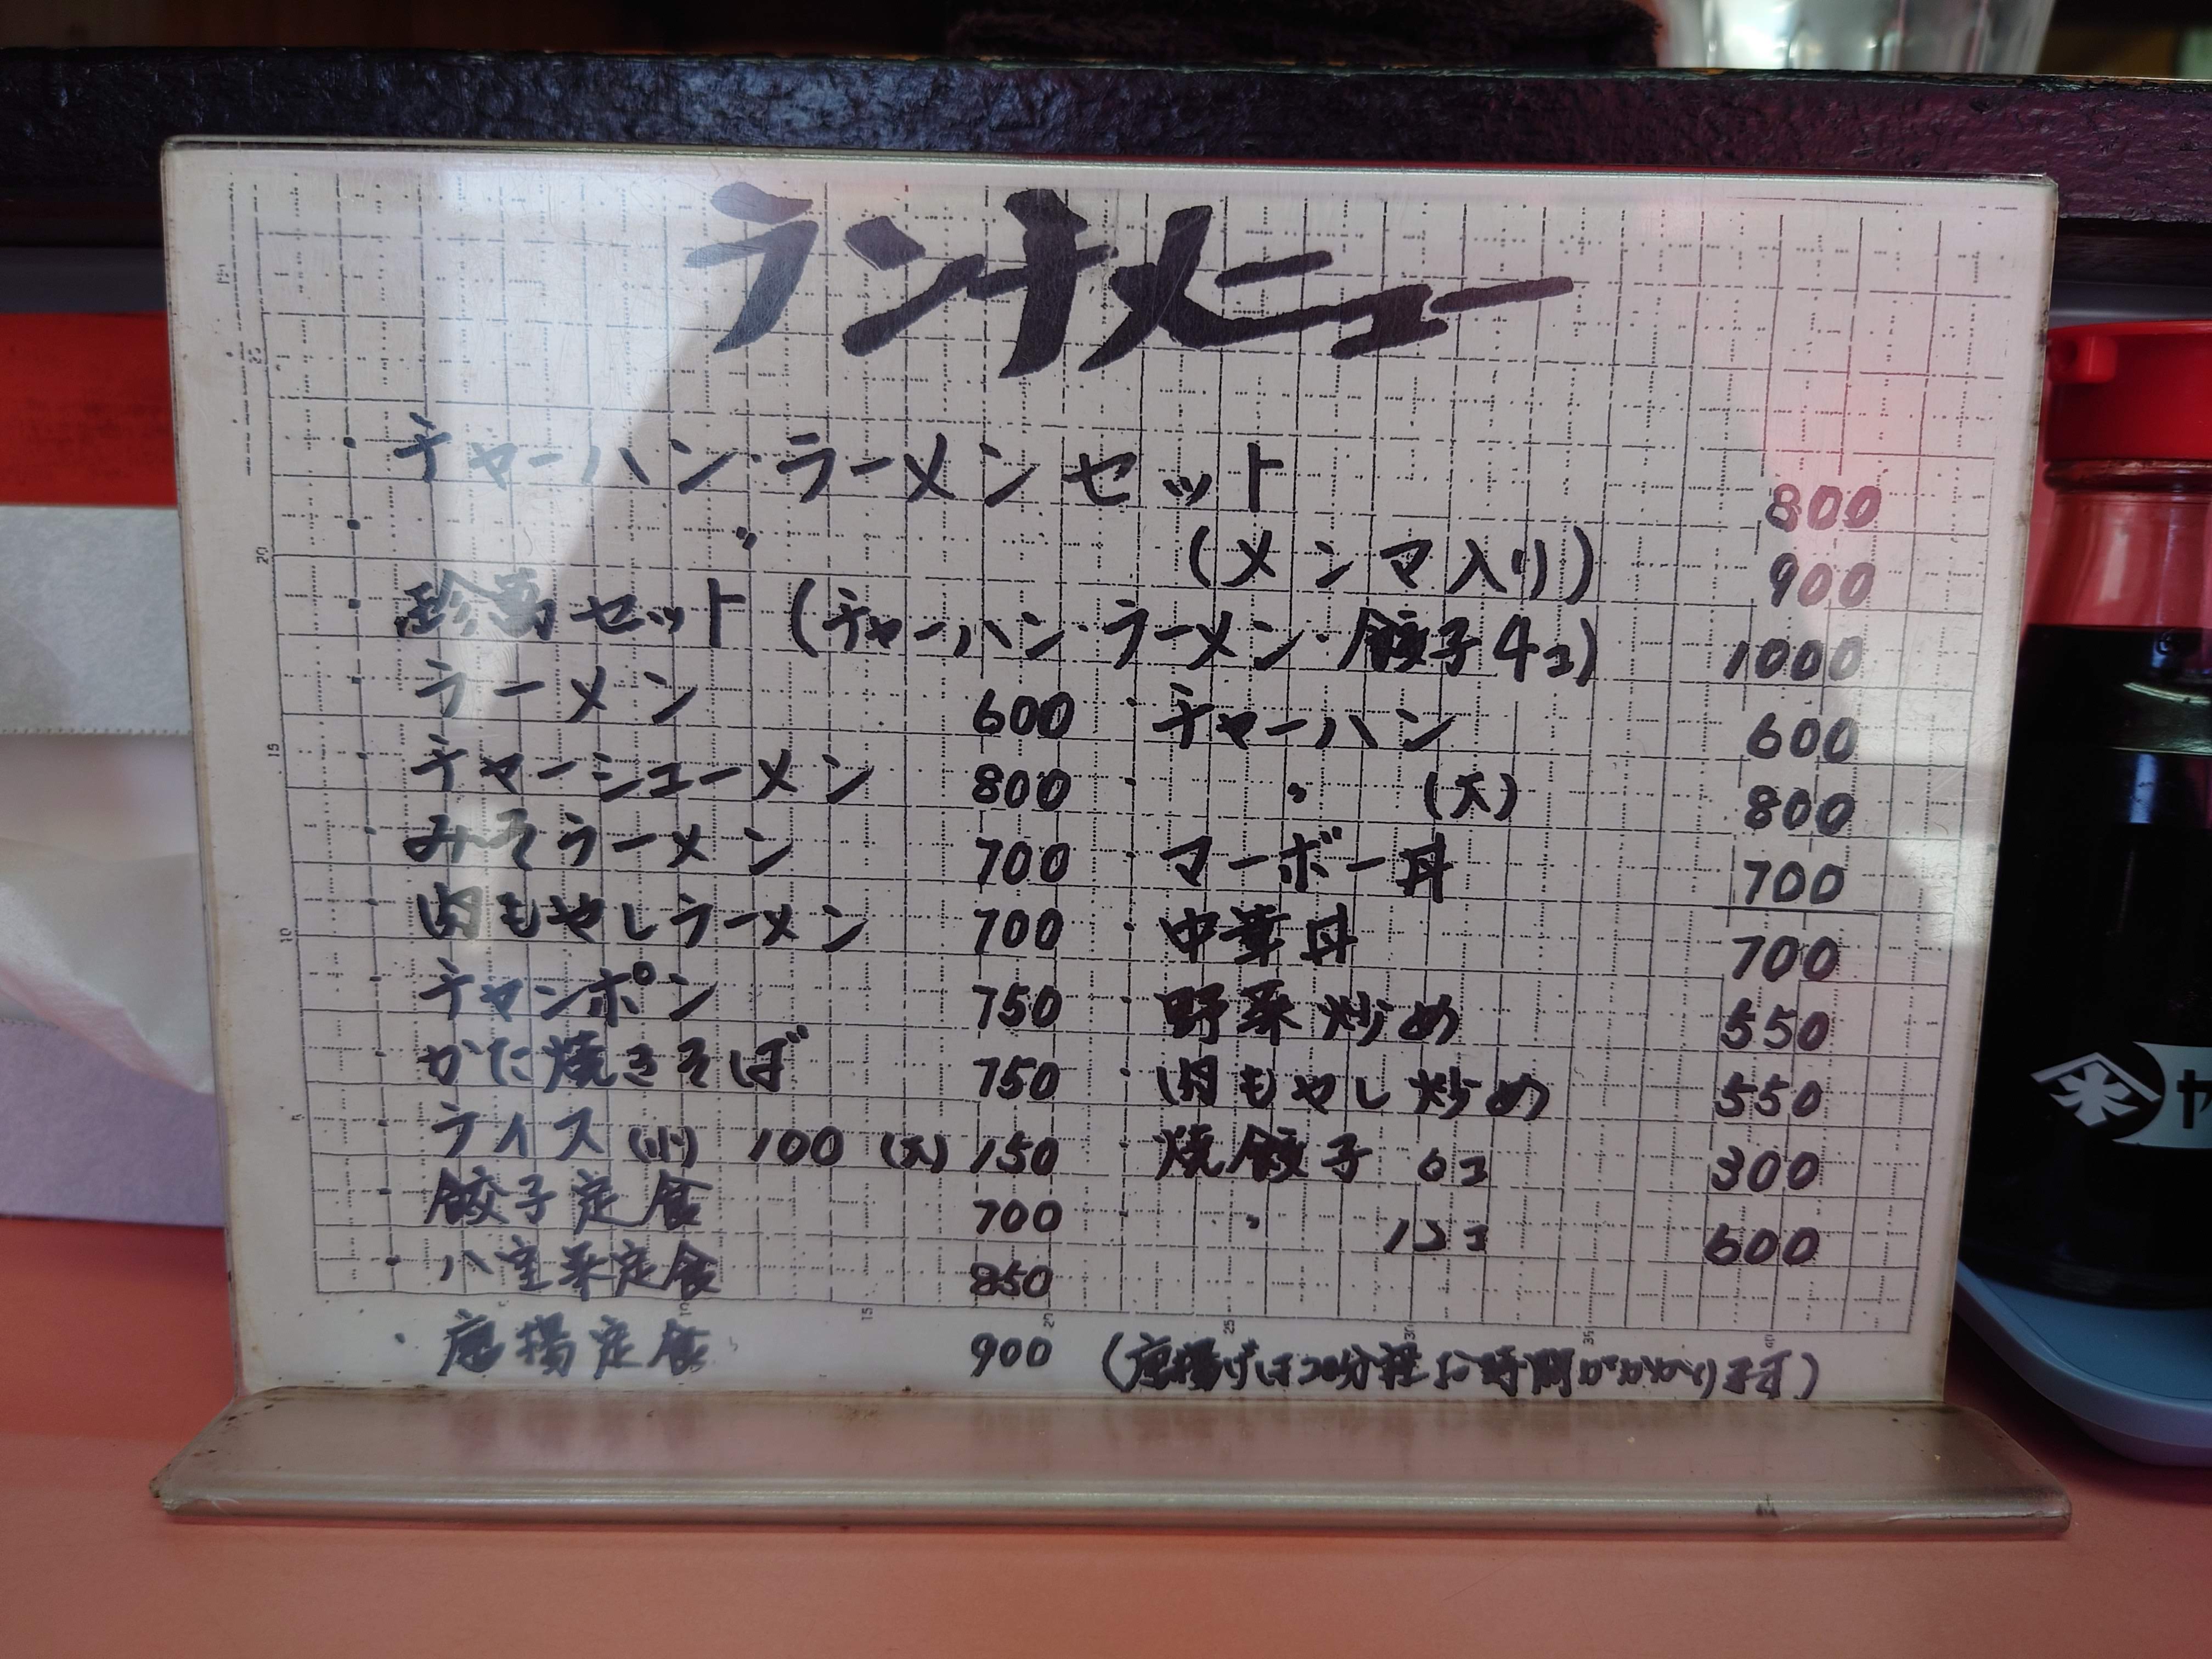 ランチメニュー
・チャーハン・ラーメンセット 800
・〃 (メンマ入り) 900
・珍萬セット (チャーハン・ラーメン・餃子4コ) 1000
・ラーメン 600 ・チャーハン 600
・チャーシューメン 800 ・〃 (大) 800
・みそラーメン 700 ・マーボー丼 700
・肉もやしラーメン 700 ・中華丼 700
・チャンポン 750 ・野菜炒め 550
・かた焼きそば 750 ・肉もやし炒め 550
・ライス (小) 100 (大) 150 ・焼餃子 6コ 300
・餃子定食 700 ・〃 12コ 600
・八宝菜定食 850
・唐揚定食 900 (唐揚げは20分程お時間がかかります)